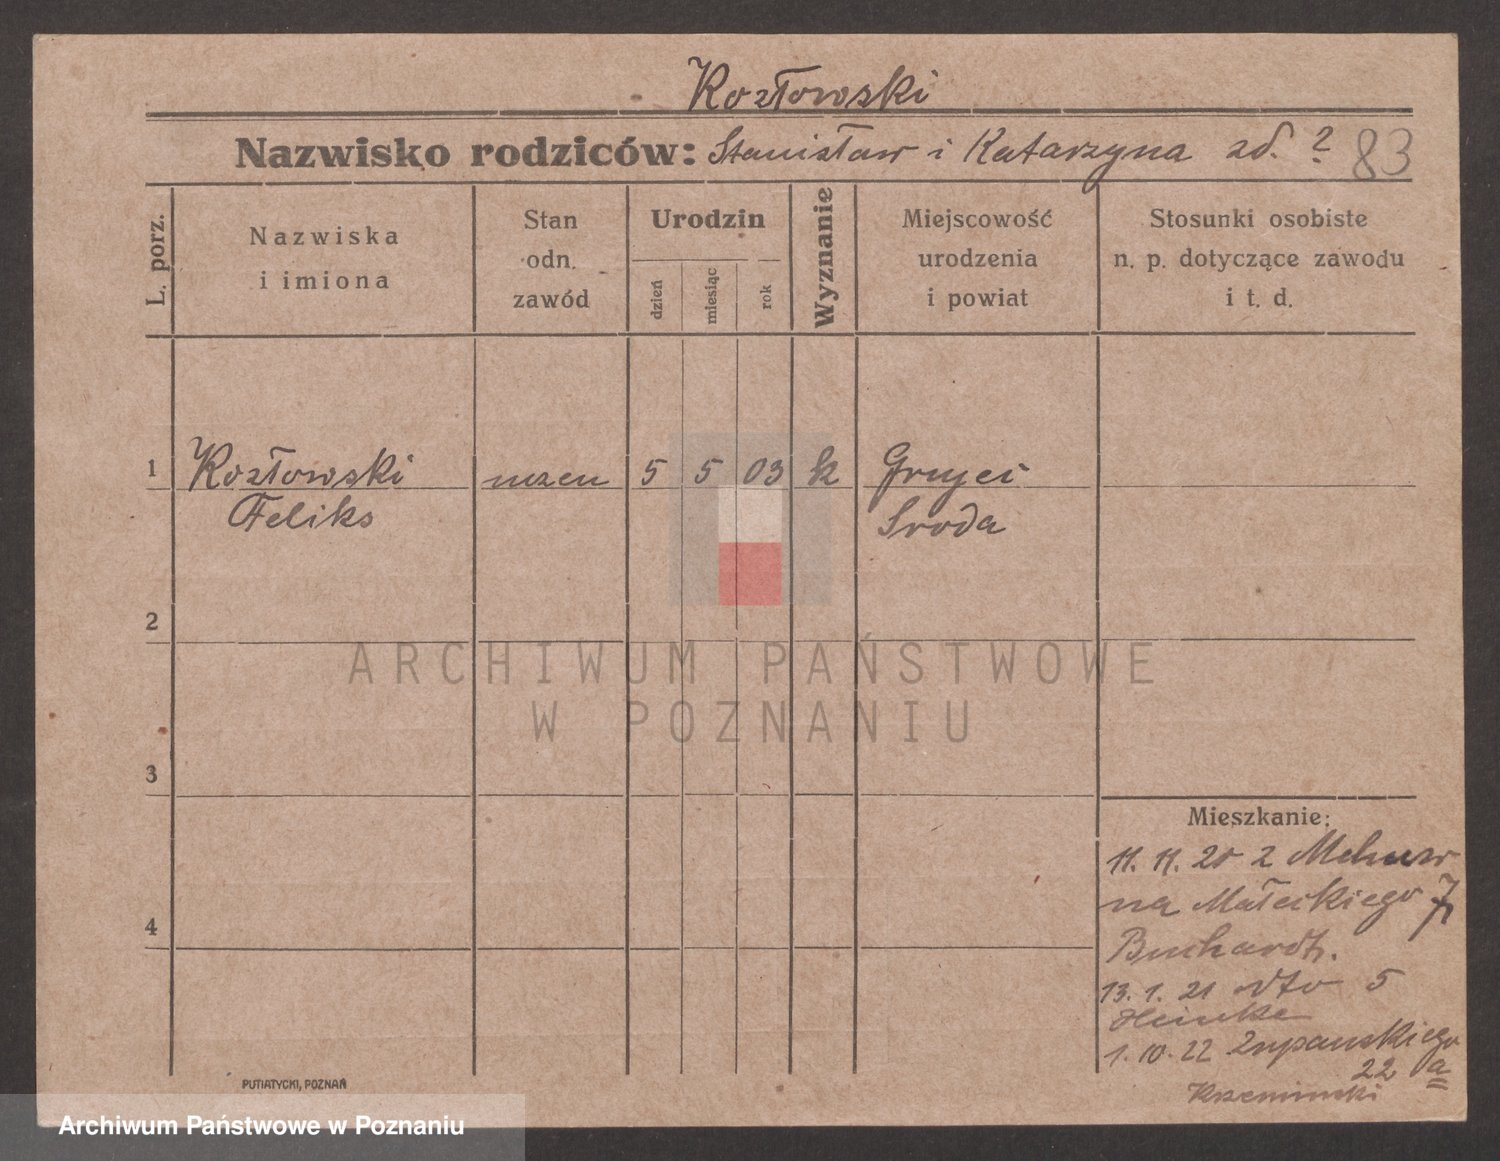 Kozłowski
Nazwisko rodziców: Stanisław i Katarzyna zd. ?
83
L. porz.
Nazwiska
i imiona
Stan
odn.
zawód
Urodzin
dzień
miesiąc
rok
Wyznanie
Miejscowość
urodzenia
i powiat
Stosunki osobiste
n. p. dotyczące zawodu
i t. d.
1 Kozłowski uczeń 5 5 03 k
Feliks Sroda
2
ARCHIWUM PAŃSTWOWE
W POZNANIU
3
4
Mieszkanie:
11. 11. 20 z
na Małeckiego 7
13. 1. 21 dto 5
Heinke
1. 10. 22 Zupanskiego
22 a
Krzeminski
PUTIATYCKI, POZNAŃ
Archiwum Państwowe w Poznaniu